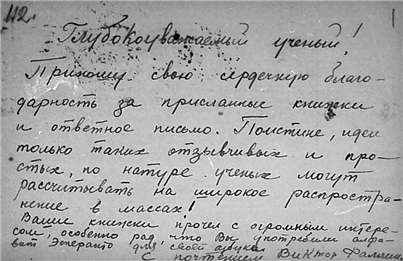 112.
Глубокоуважаемый ученый!
Приношу свою сердечную благо-
дарность за присланные книжки
и ответное письмо. Поистине, идеи
только таких отзывчивых и про-
стых, по натуре ученых могут
рассчитывать на широкое распростра-
нение в массах!
Ваши книжки прочел с огромным интере-
сом, особенно рад что Вы употребили алфа-
вит Эсперанто для своей азбуки.
С почтением Виктор